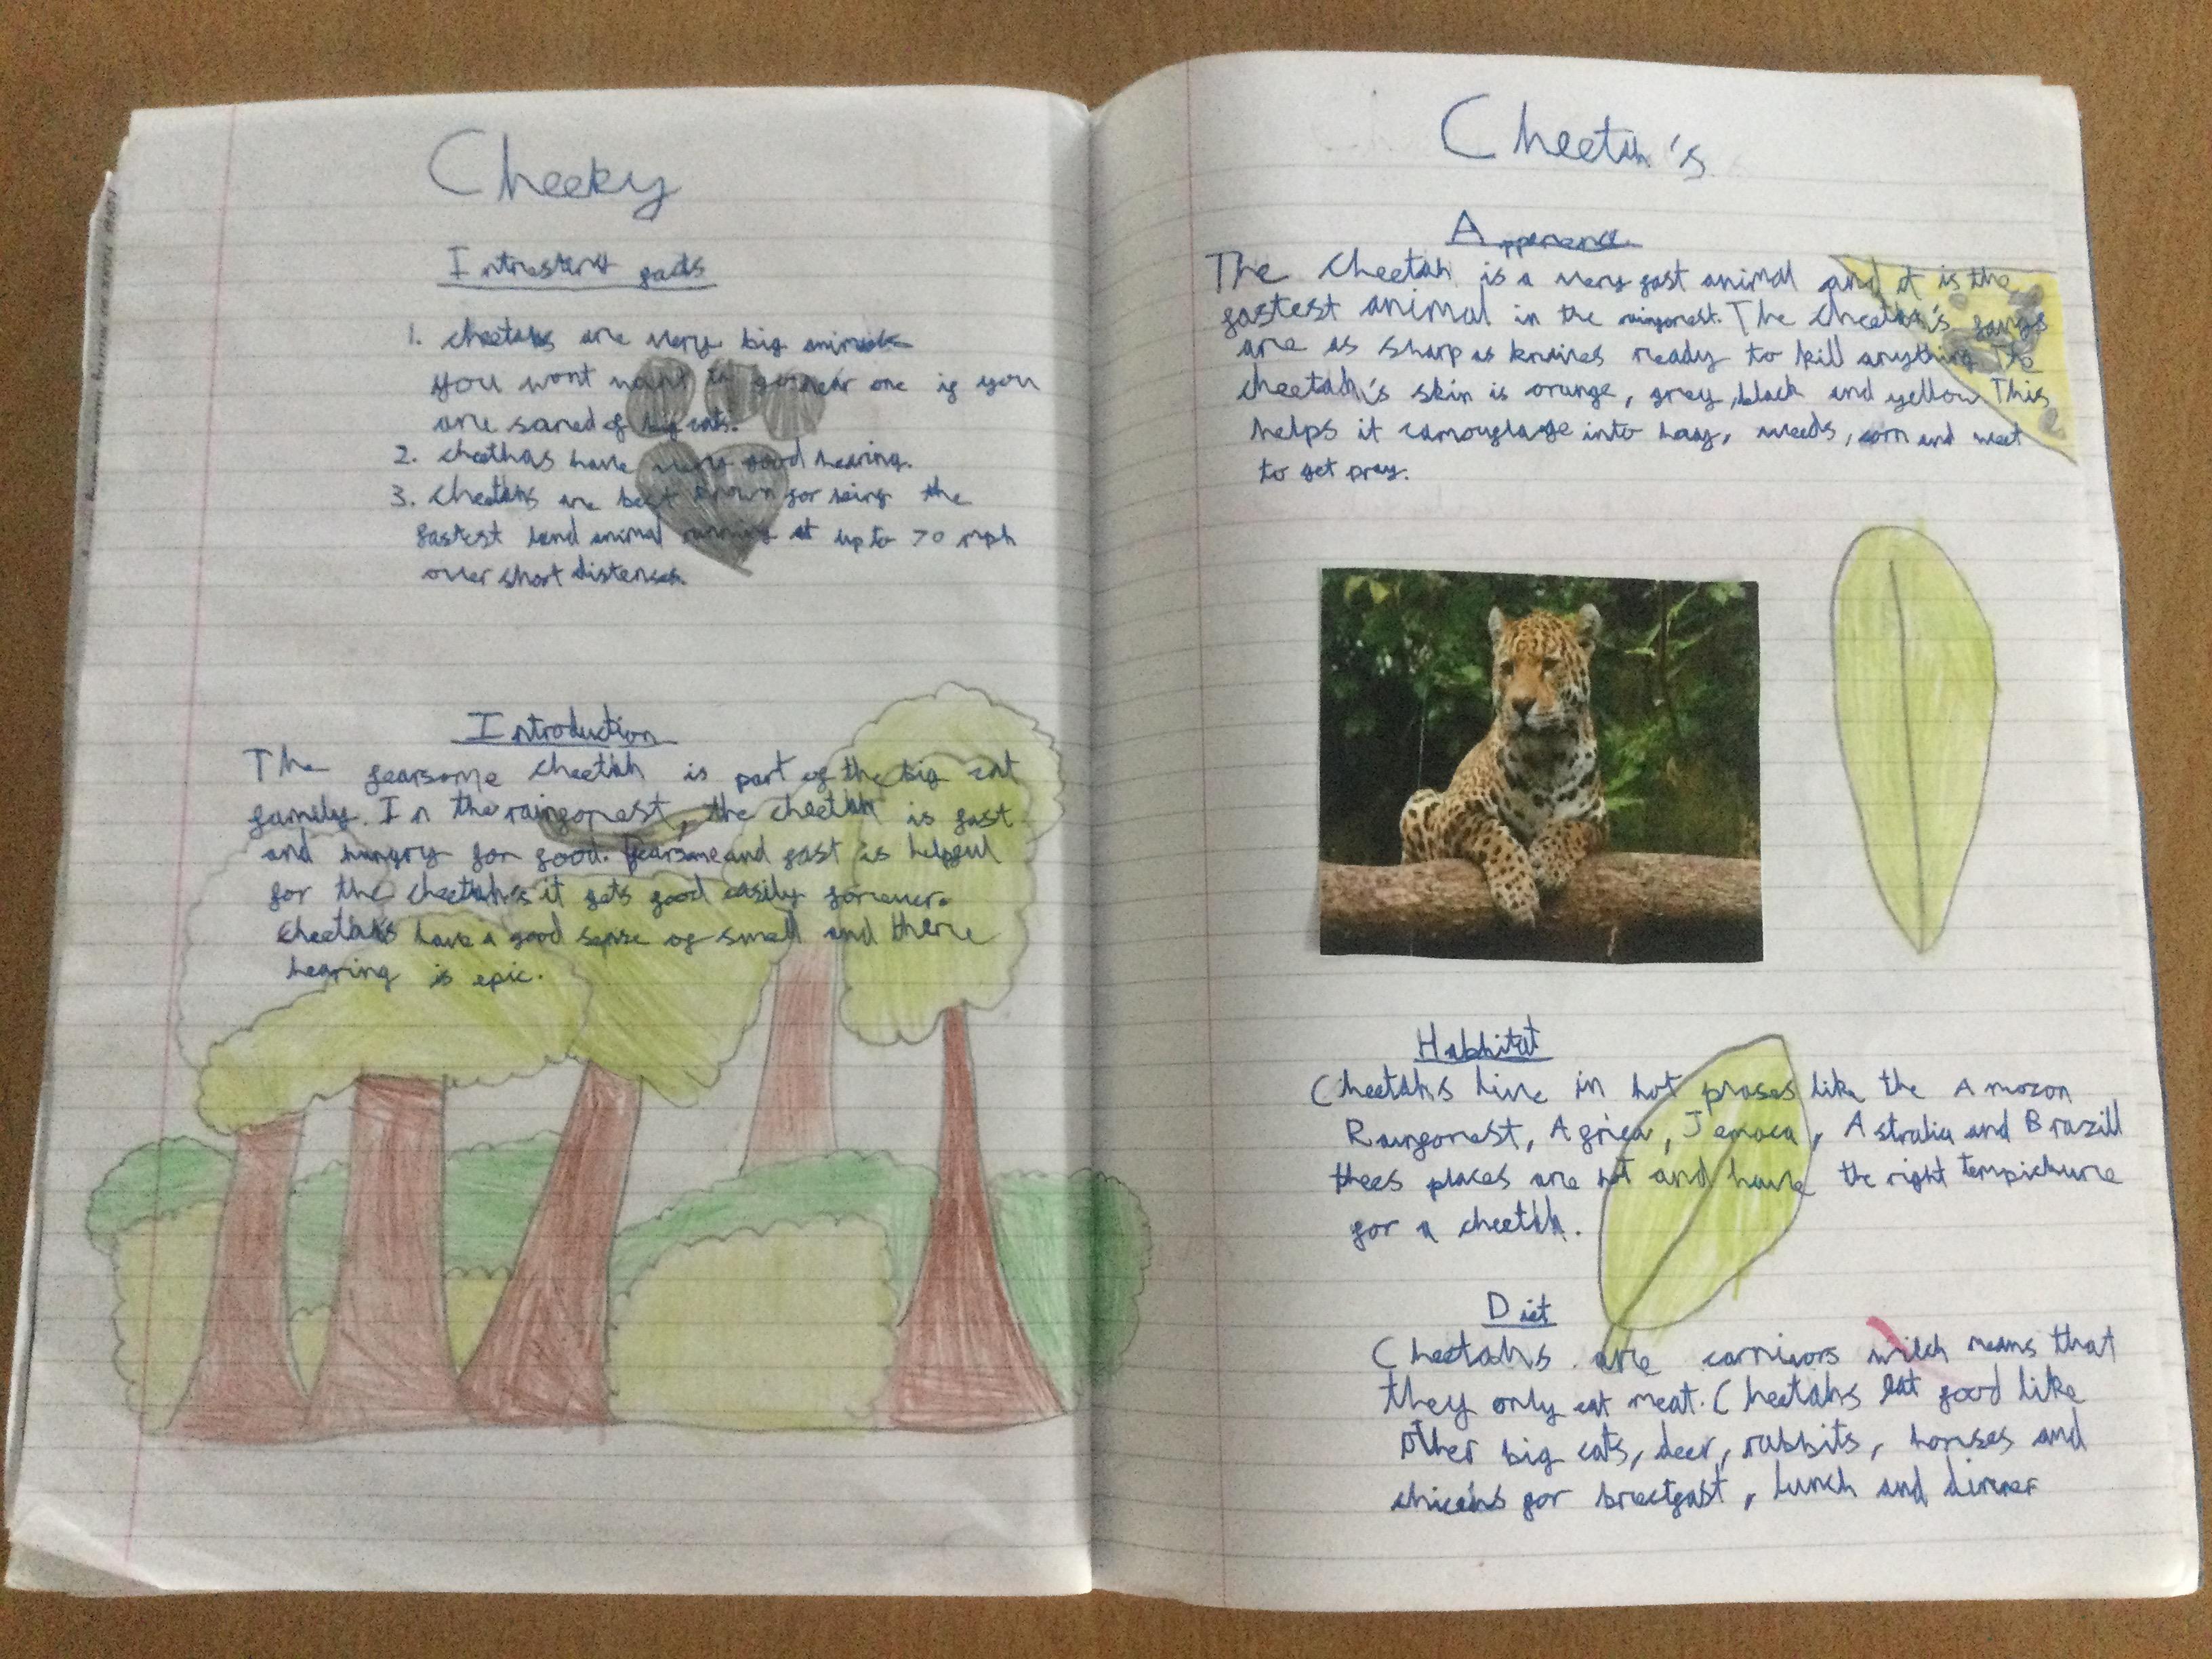 Cheeky
Intresting facts
1. cheetahs are very big animals
you wont want to go near one if you
are scared of big cats.
2. cheethas have very good hearing.
3. Cheetahs are best known for being the
fastest land animal running at up to 70 mph
over short distenses.
Introduction
The fearsome cheetah is part of the big cat
family. In the rainforest, the cheetah is fast
and hungry for food. Fearsome and fast is helpful
for the cheetah's it gets food easily forever.
Cheetahs have a good sense of smell and there
hearing is epic.
Cheetah's
The cheetah is a very fast animal and it is the
fastest animal in the rainforest. The cheetah's fangs
are as sharp as knives ready to kill anything. The
cheetah's skin is orange, grey, black and yellow. This
helps it camouflage into hay, weeds, corn and weet
to get pray.
Habhitat
Cheetahs live in hot plases like the Amozon
Rainforest, Africa, Jemaca, Astralia and Brazill
thees places are hot and have the right tempichure
for a cheetah.
Diet
Cheetahs are carnivors wilch means that
they only eat meat. Cheetahs eat food like
other big cats, deer, rabbits, horses and
chicens for brectfast, lunch and dinner